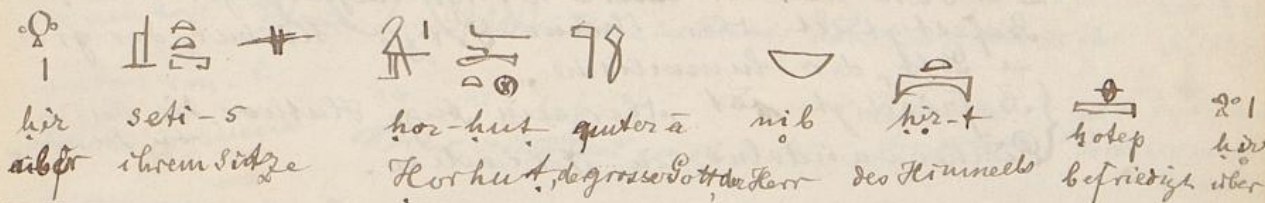 𓁷𓏤 𓊨𓏏𓉐 𓊃 𓊹𓉻 𓎟 𓇯 𓊵 𓁷𓏤
ḥir seti-s ḥor-ḥuṭ nuter ā nib ḥir-t ḥotep ḥir
über ihrem Sitze Horhuṭ, de grosse Gott, der Herr des Himmels befriedigt über